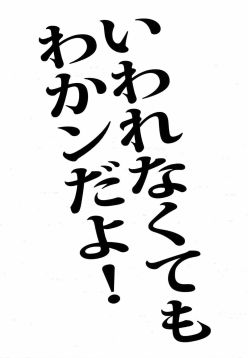 いわれなくても
わかンだよ！